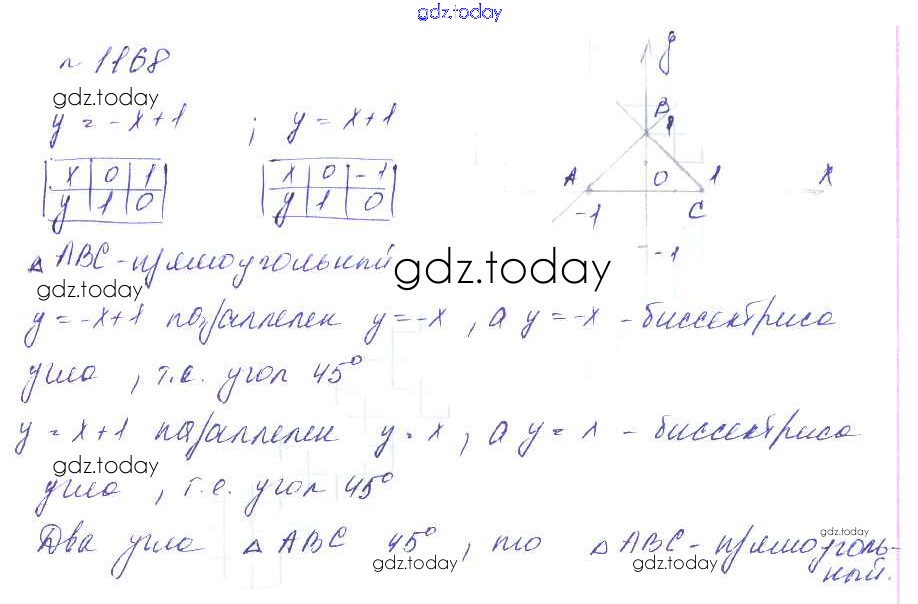 gdz.today
№ 1168
gdz.today
y = -x+1 ; y = x+1
x 0 1
y 1 0
x 0 -1
y 1 0
y
B
1
A 0 1 x
-1 C
-1
△ ABC - прямоугольный
gdz.today
gdz.today
y = -x+1 параллелен y = -x , а y = -x - биссектриса
угла , т.е. угол 45°
y = x+1 параллелен y = x , а y = x - биссектриса
gdz.today
угла , т.е. угол 45°
gdz.today
Два угла △ ABC 45° , то △ ABC - прямоуголь-
ный.
gdz.today
gdz.today
gdz.today